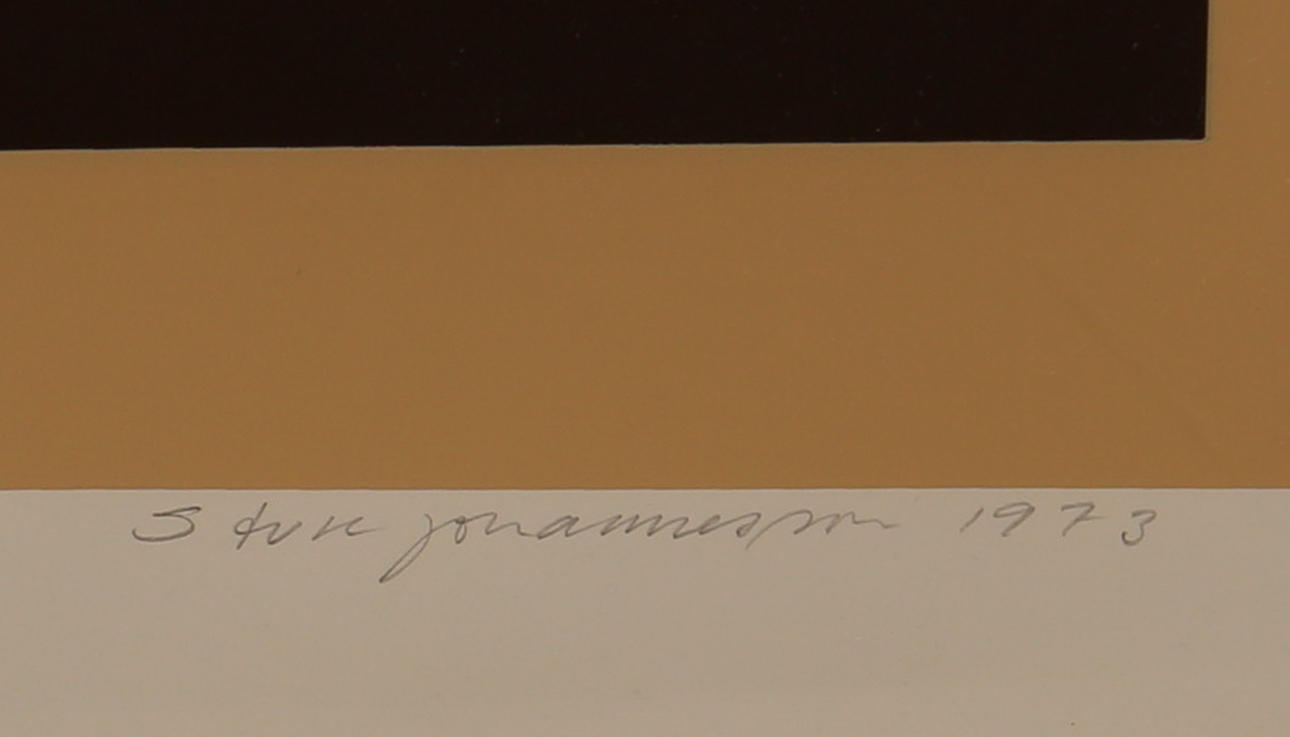 Sture Johannesson 1973